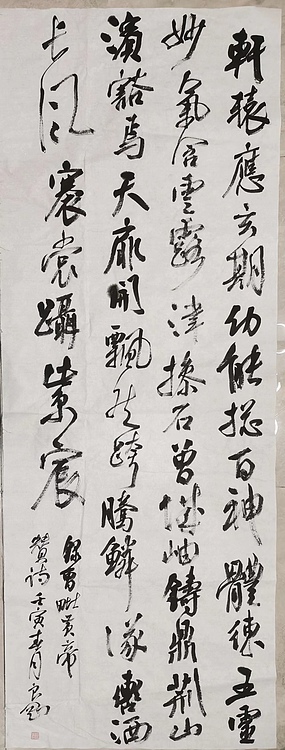 軒轅應玄期幼能揔百神體練五靈
妙氣含雲露津掺石曾城岫鑄鼎荆山
濱豁焉天扉開飄然跨騰鱗轡洒
長風褰裳躡紫宸
錄曹毗黄帝
赞詩壬寅春月